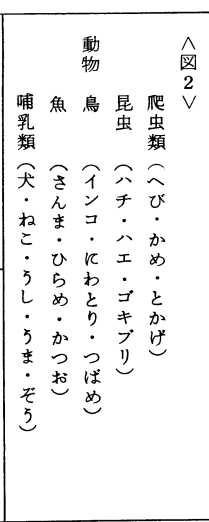 <図2>
爬虫類(へび・かめ・とかげ)
昆虫(ハチ・ハエ・ゴキブリ)
動物 鳥(インコ・にわとり・つばめ)
魚(さんま・ひらめ・かつお)
哺乳類(犬・ねこ・うし・うま・ぞう)